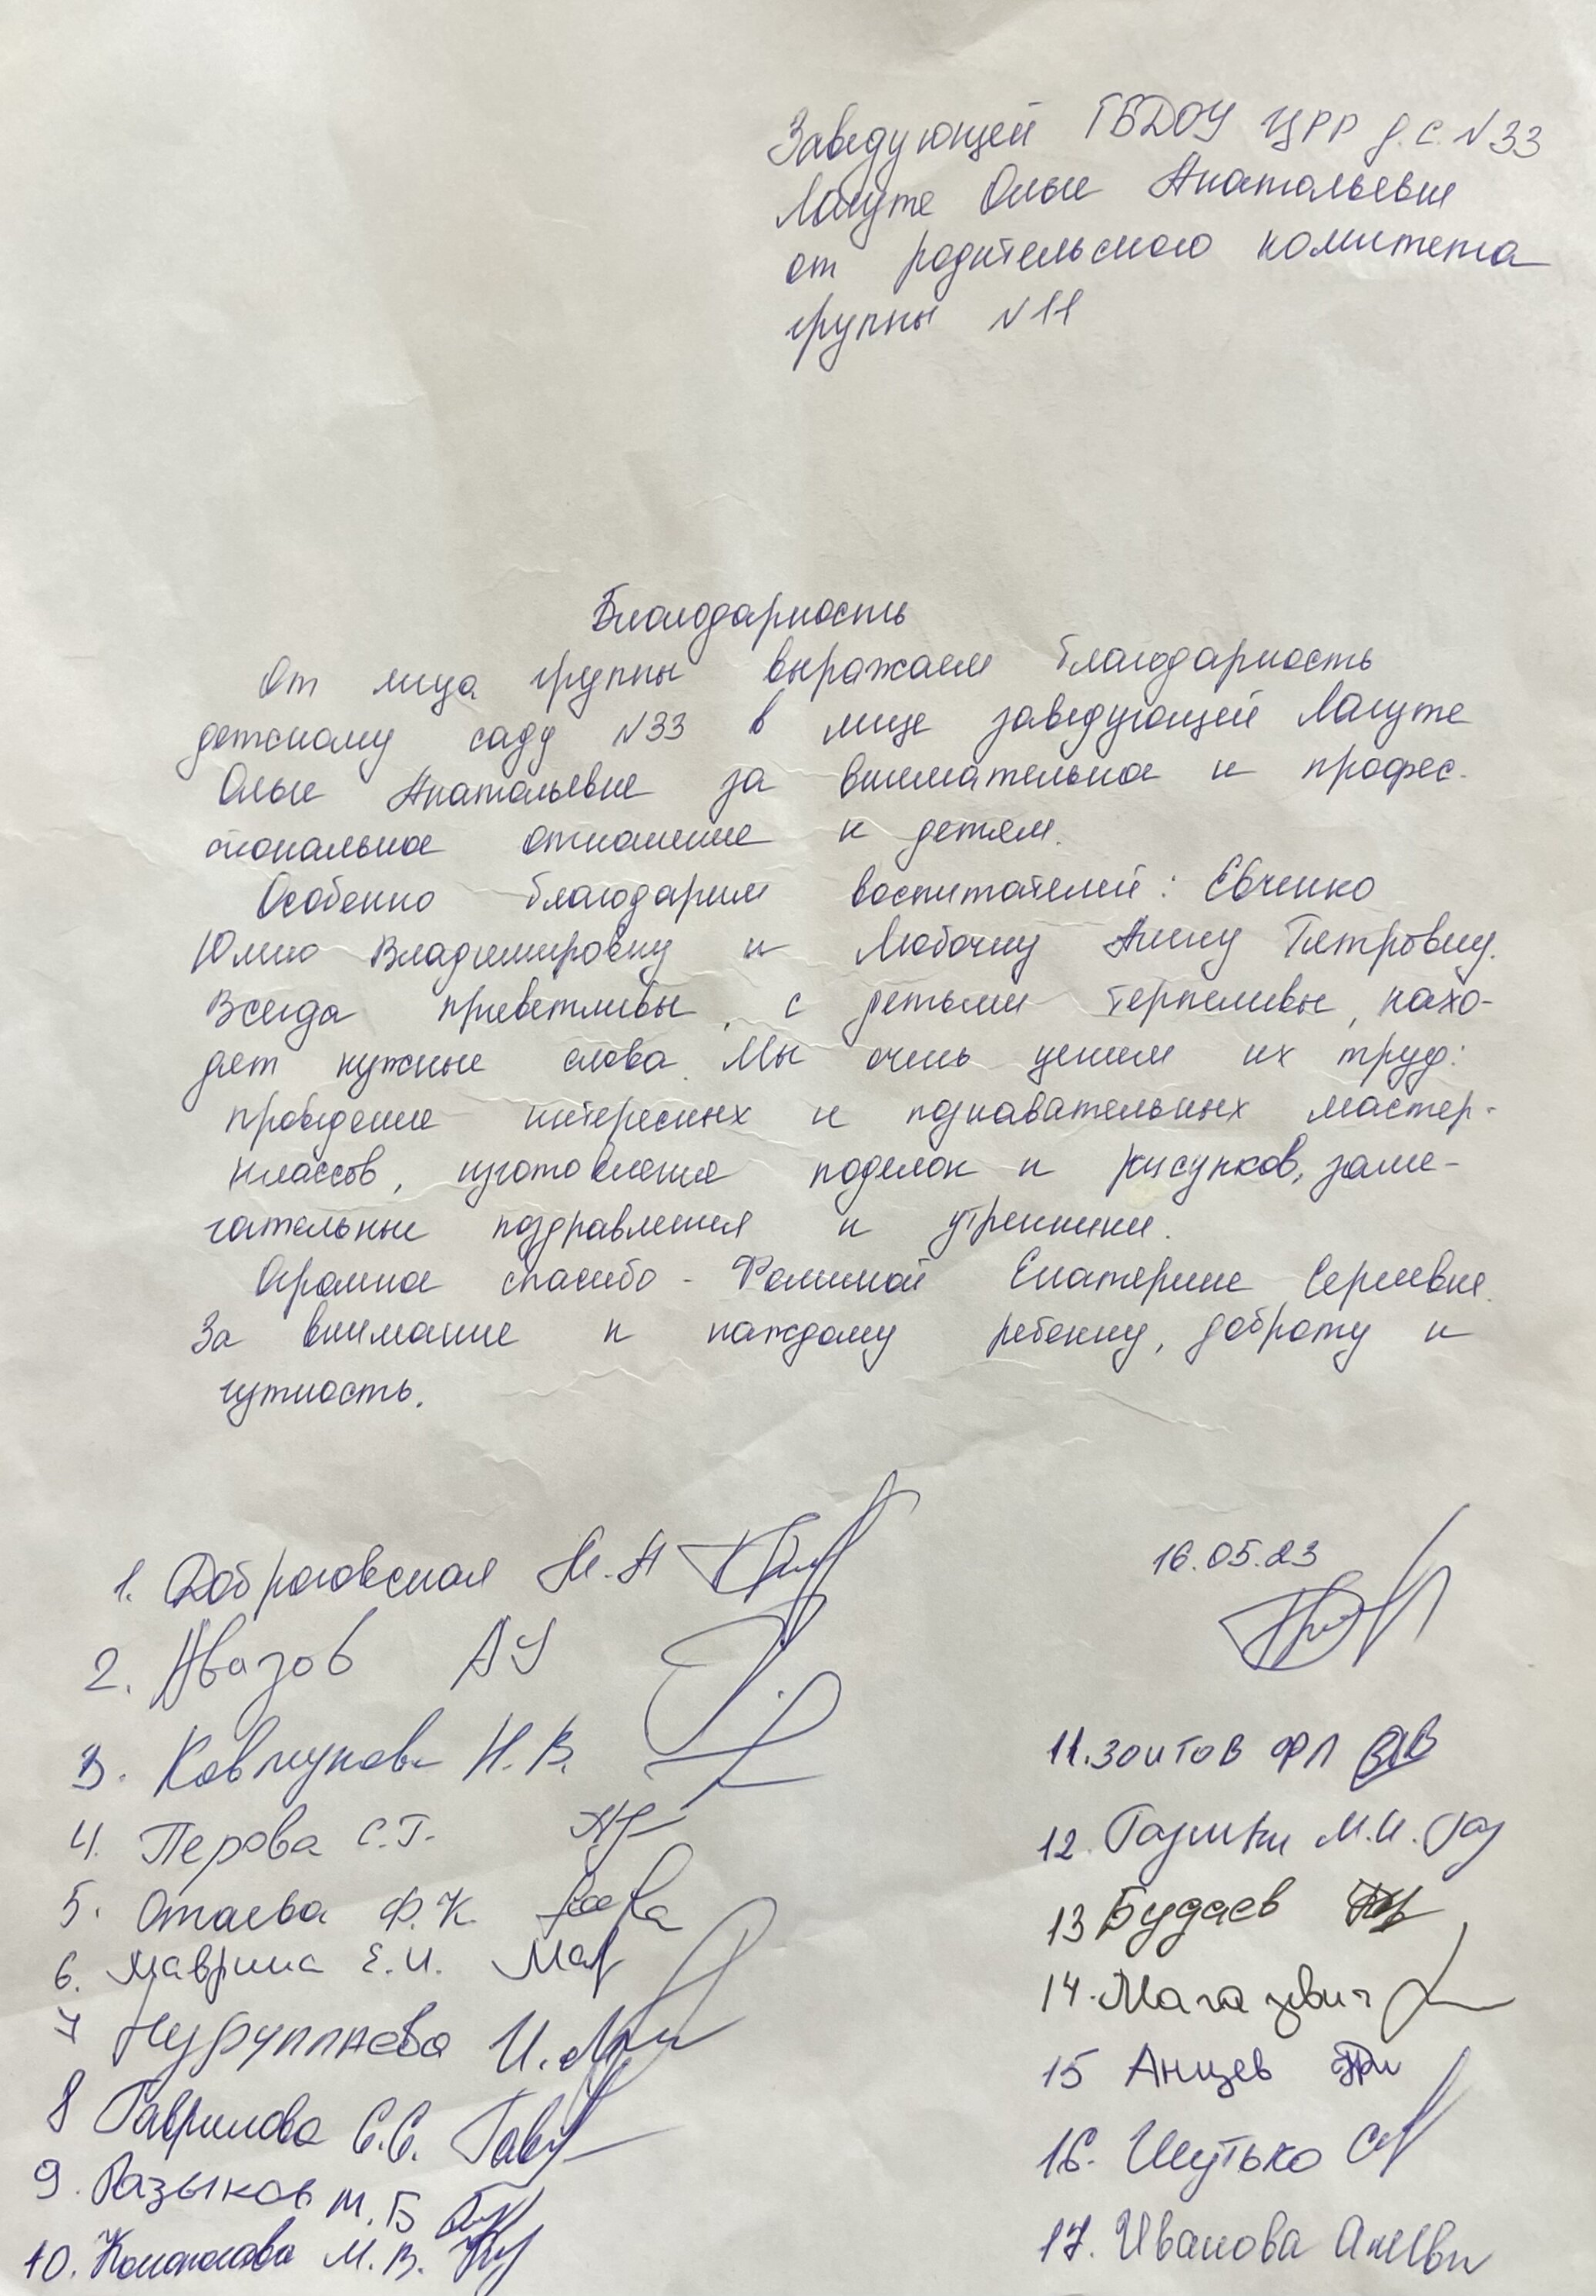 Заведующей ГБДОУ ЦРР д.с. №33
Лагуте Ольге Анатольевне
от родительского комитета
группы №11
Благодарность
От лица группы выражаем благодарность
детскому саду №33 в лице заведующей Лагуте
Ольге Анатольевне за внимательное и профес-
сиональное отношение к детям.
Особенно благодарим воспитателей: Евченко
Юлию Владимировну и Любочку Анну Петровну.
Всегда приветливы, с детьми терпеливы, нахо-
дят нужные слова. Мы очень ценим их труд:
проведение интересных и познавательных мастер-
классов, изготовление поделок и рисунков, заме-
чательные поздравления и утренники.
Огромное спасибо - Фоминой Екатерине Сергеевне.
За внимание к каждому ребенку, доброту и
чуткость.
1. Доброговская М.А
16.05.23
2. Авазов АУ
3. Н.В.
4. Перова С.Г.
5. Отаева Ф.К.
6. Маврина Е.И. Мав
7 И.
8 Гаврилова С.С. Гав
9. Разыков М.Б
10. М.В.
11. Зоитов ФЛ
12. М.И.
13 Будаев
14.
15 Анцев
16. Шутько
17. Иванова